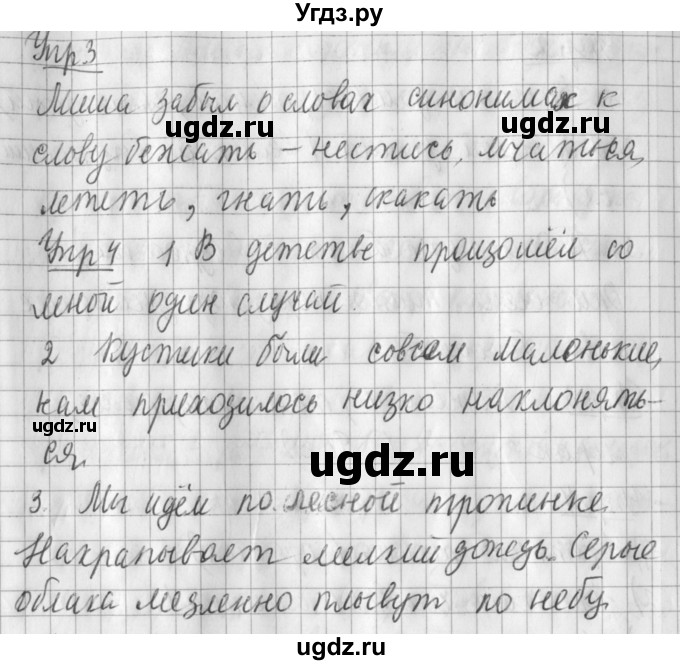 Угдз.ру
Упр 3
Миша забыл о словах синонимах к
ugdz.ru ugdz.ru
слову бежать – нестись, мчаться,
лететь, гнать, скакать
Упр 4 1 В детстве произошёл со
мной один случай.
2 Кустики были совсем маленькие,
нам приходилось низко наклонять-
ugdz.ru
ся.
ugdz.ru
3. Мы идём по лесной тропинке.
Накрапывает мелкий дождь. Серые
облака медленно плывут по небу
ugdz.ru